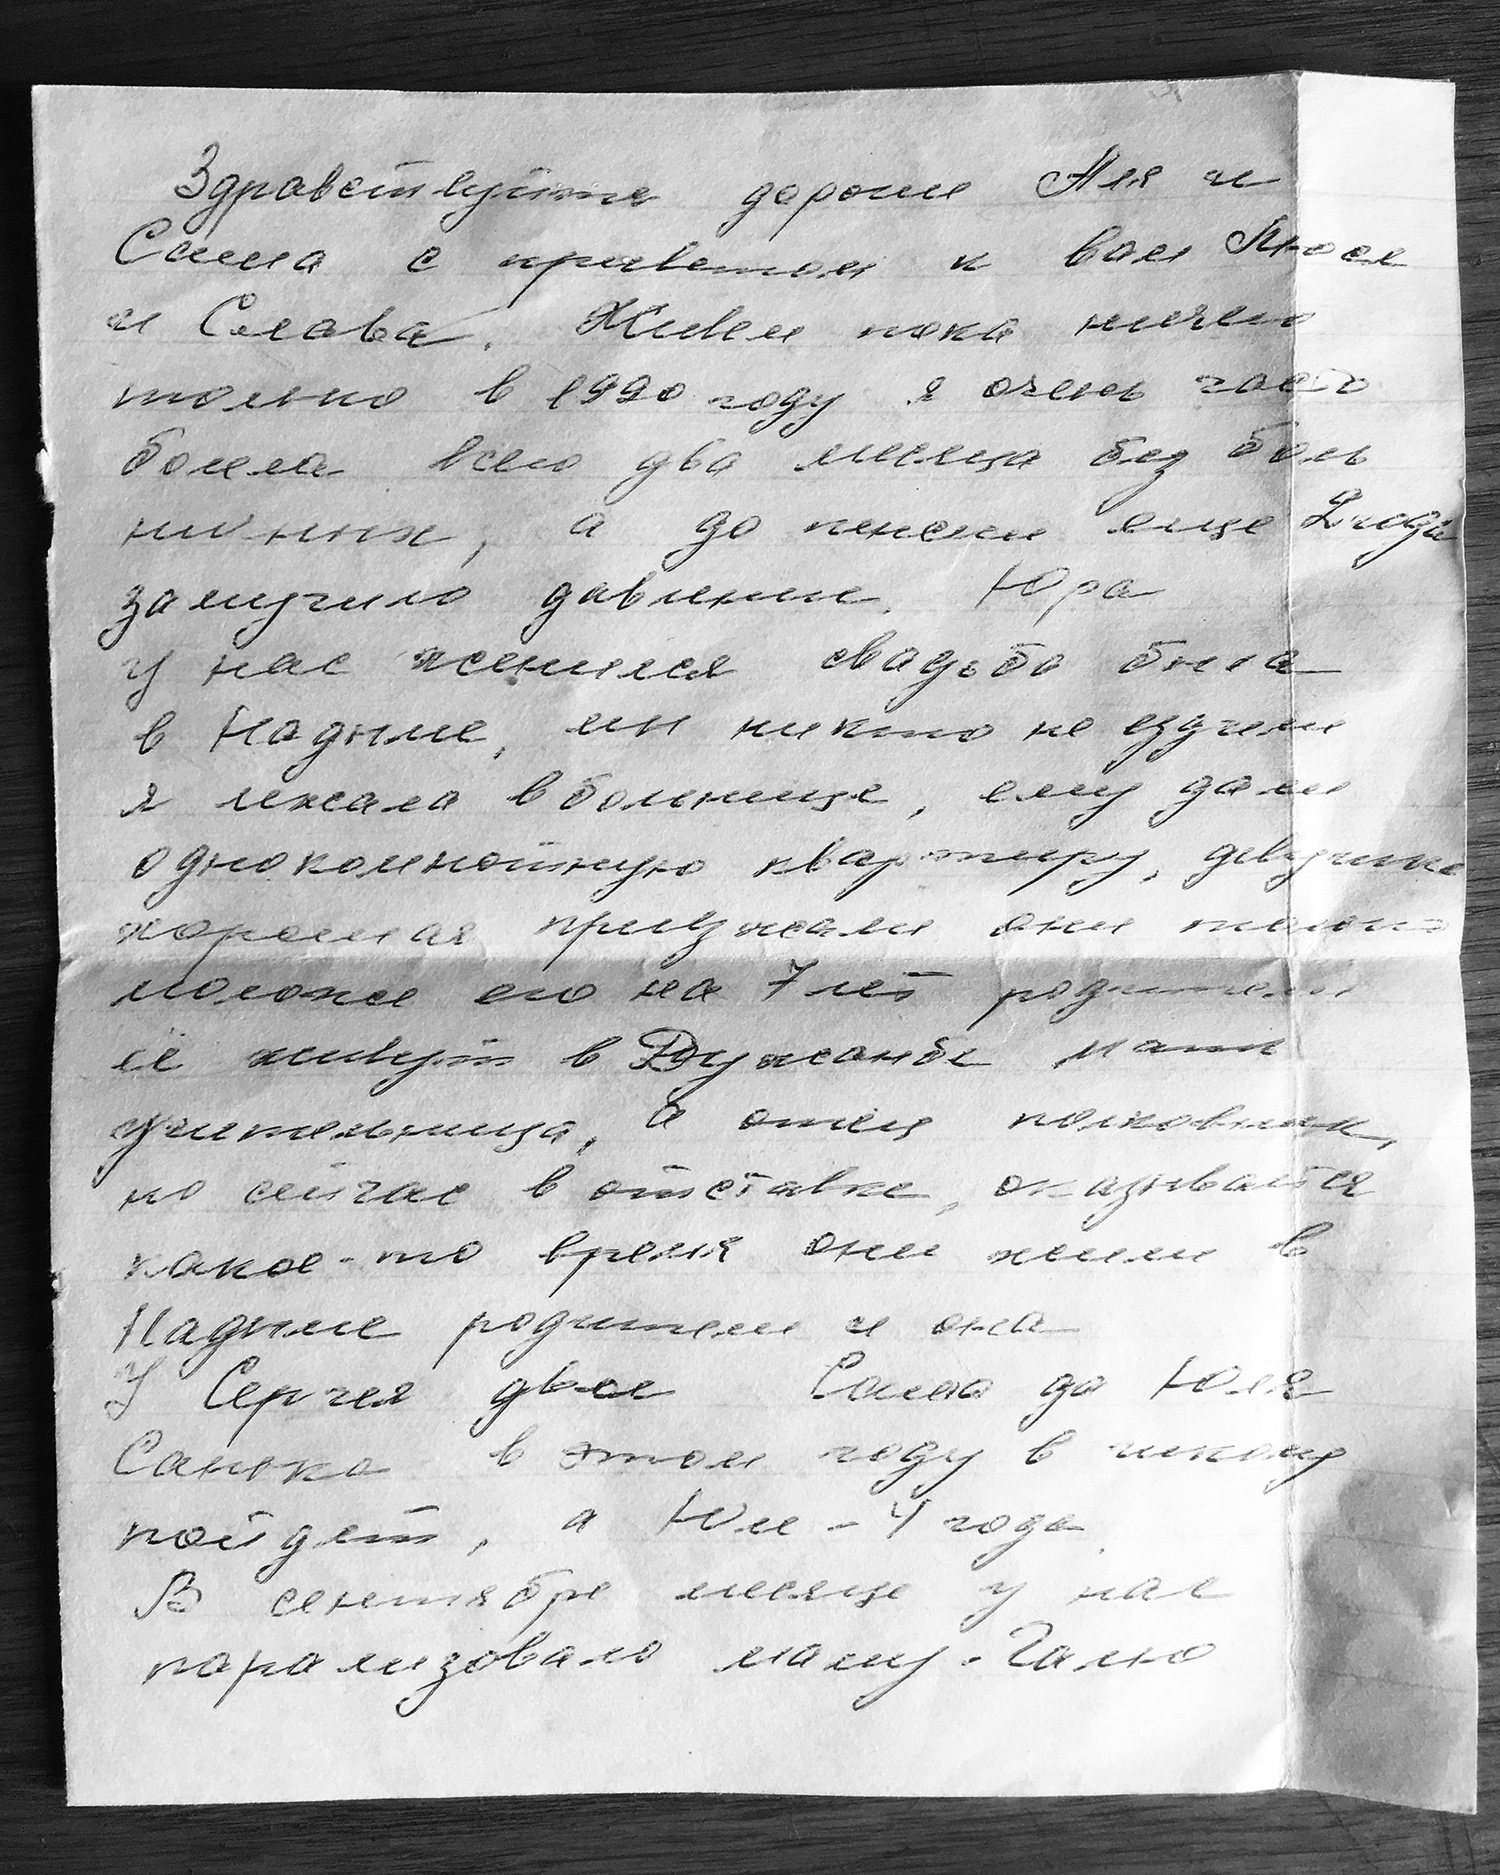 Здравствуйте дорогие Аля и
Саша с приветом к вам Люся
и Слава. Живем пока ничего
только в 1990 году я очень часто
болела всего два месяца без боль
ничных, а до пенсии еще 2 года
замучило давление. Юра
у нас женился свадьба была
в Надыме, мы никто не ездили
я лежала в больнице, ему дали
однокомнатную квартиру, девушка
хорошая приезжали они только
моложе его на 7 лет родители
её живут в Душанбе мать
учительница, а отец полковник,
но сейчас в отставке, оказывается
какое-то время они жили в
Надыме родители и она
У Сергея двое Саша да Юля
Санька в этом году в школу
пойдет, а Юле - 4 года.
В сентябре месяце у нас
парализовало маму. Галю